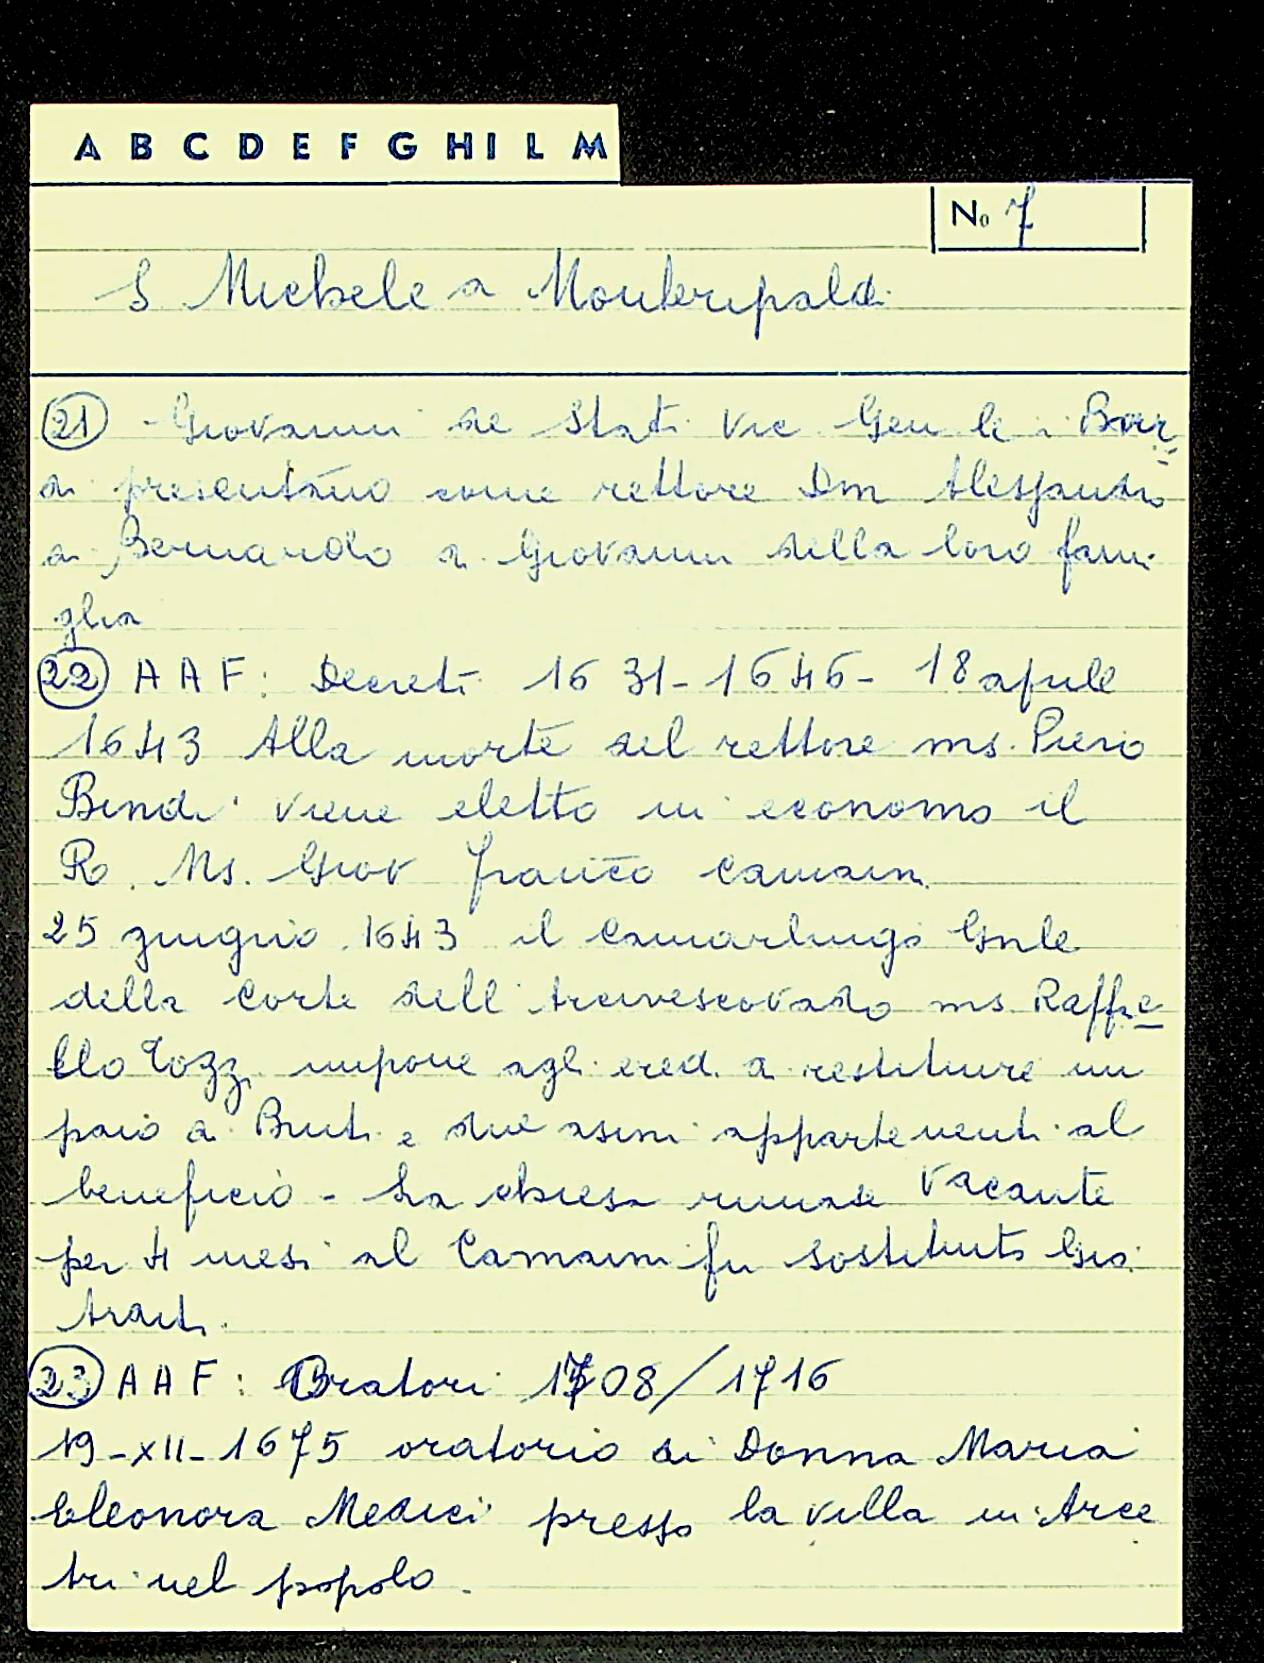 A B C D E F G H I L M
No 7
S Michele a Monteripaldi
21 - Giovanni de Stati Vic Gen le i Bar
di presentano come rettore Dm Alessandro
di Bernardo di Giovanni della loro fami
glia
22 AAF: Decreti 1631-1646- 18 aprile
1643 Alla morte del rettore ms. Piero
Bindi viene eletto in economo il
R. Ms. Giov Franco Camaini
25 giugno 1643 il Camarlingo Gnle
della Corte dell'Arcivescovado ms Raffae
llo Tozzi impone agli eredi di restituire un
paio di Buti e due asini appartenenti al
beneficio - La chiesa rimase Vacante
per 4 mesi al Camaini fu sostituto Gio:
23 AAF: Oratori 1708/1716
19-XII-1675 oratorio di Donna Maria
Eleonora Medici presso la villa in Arce
tri nel popolo.